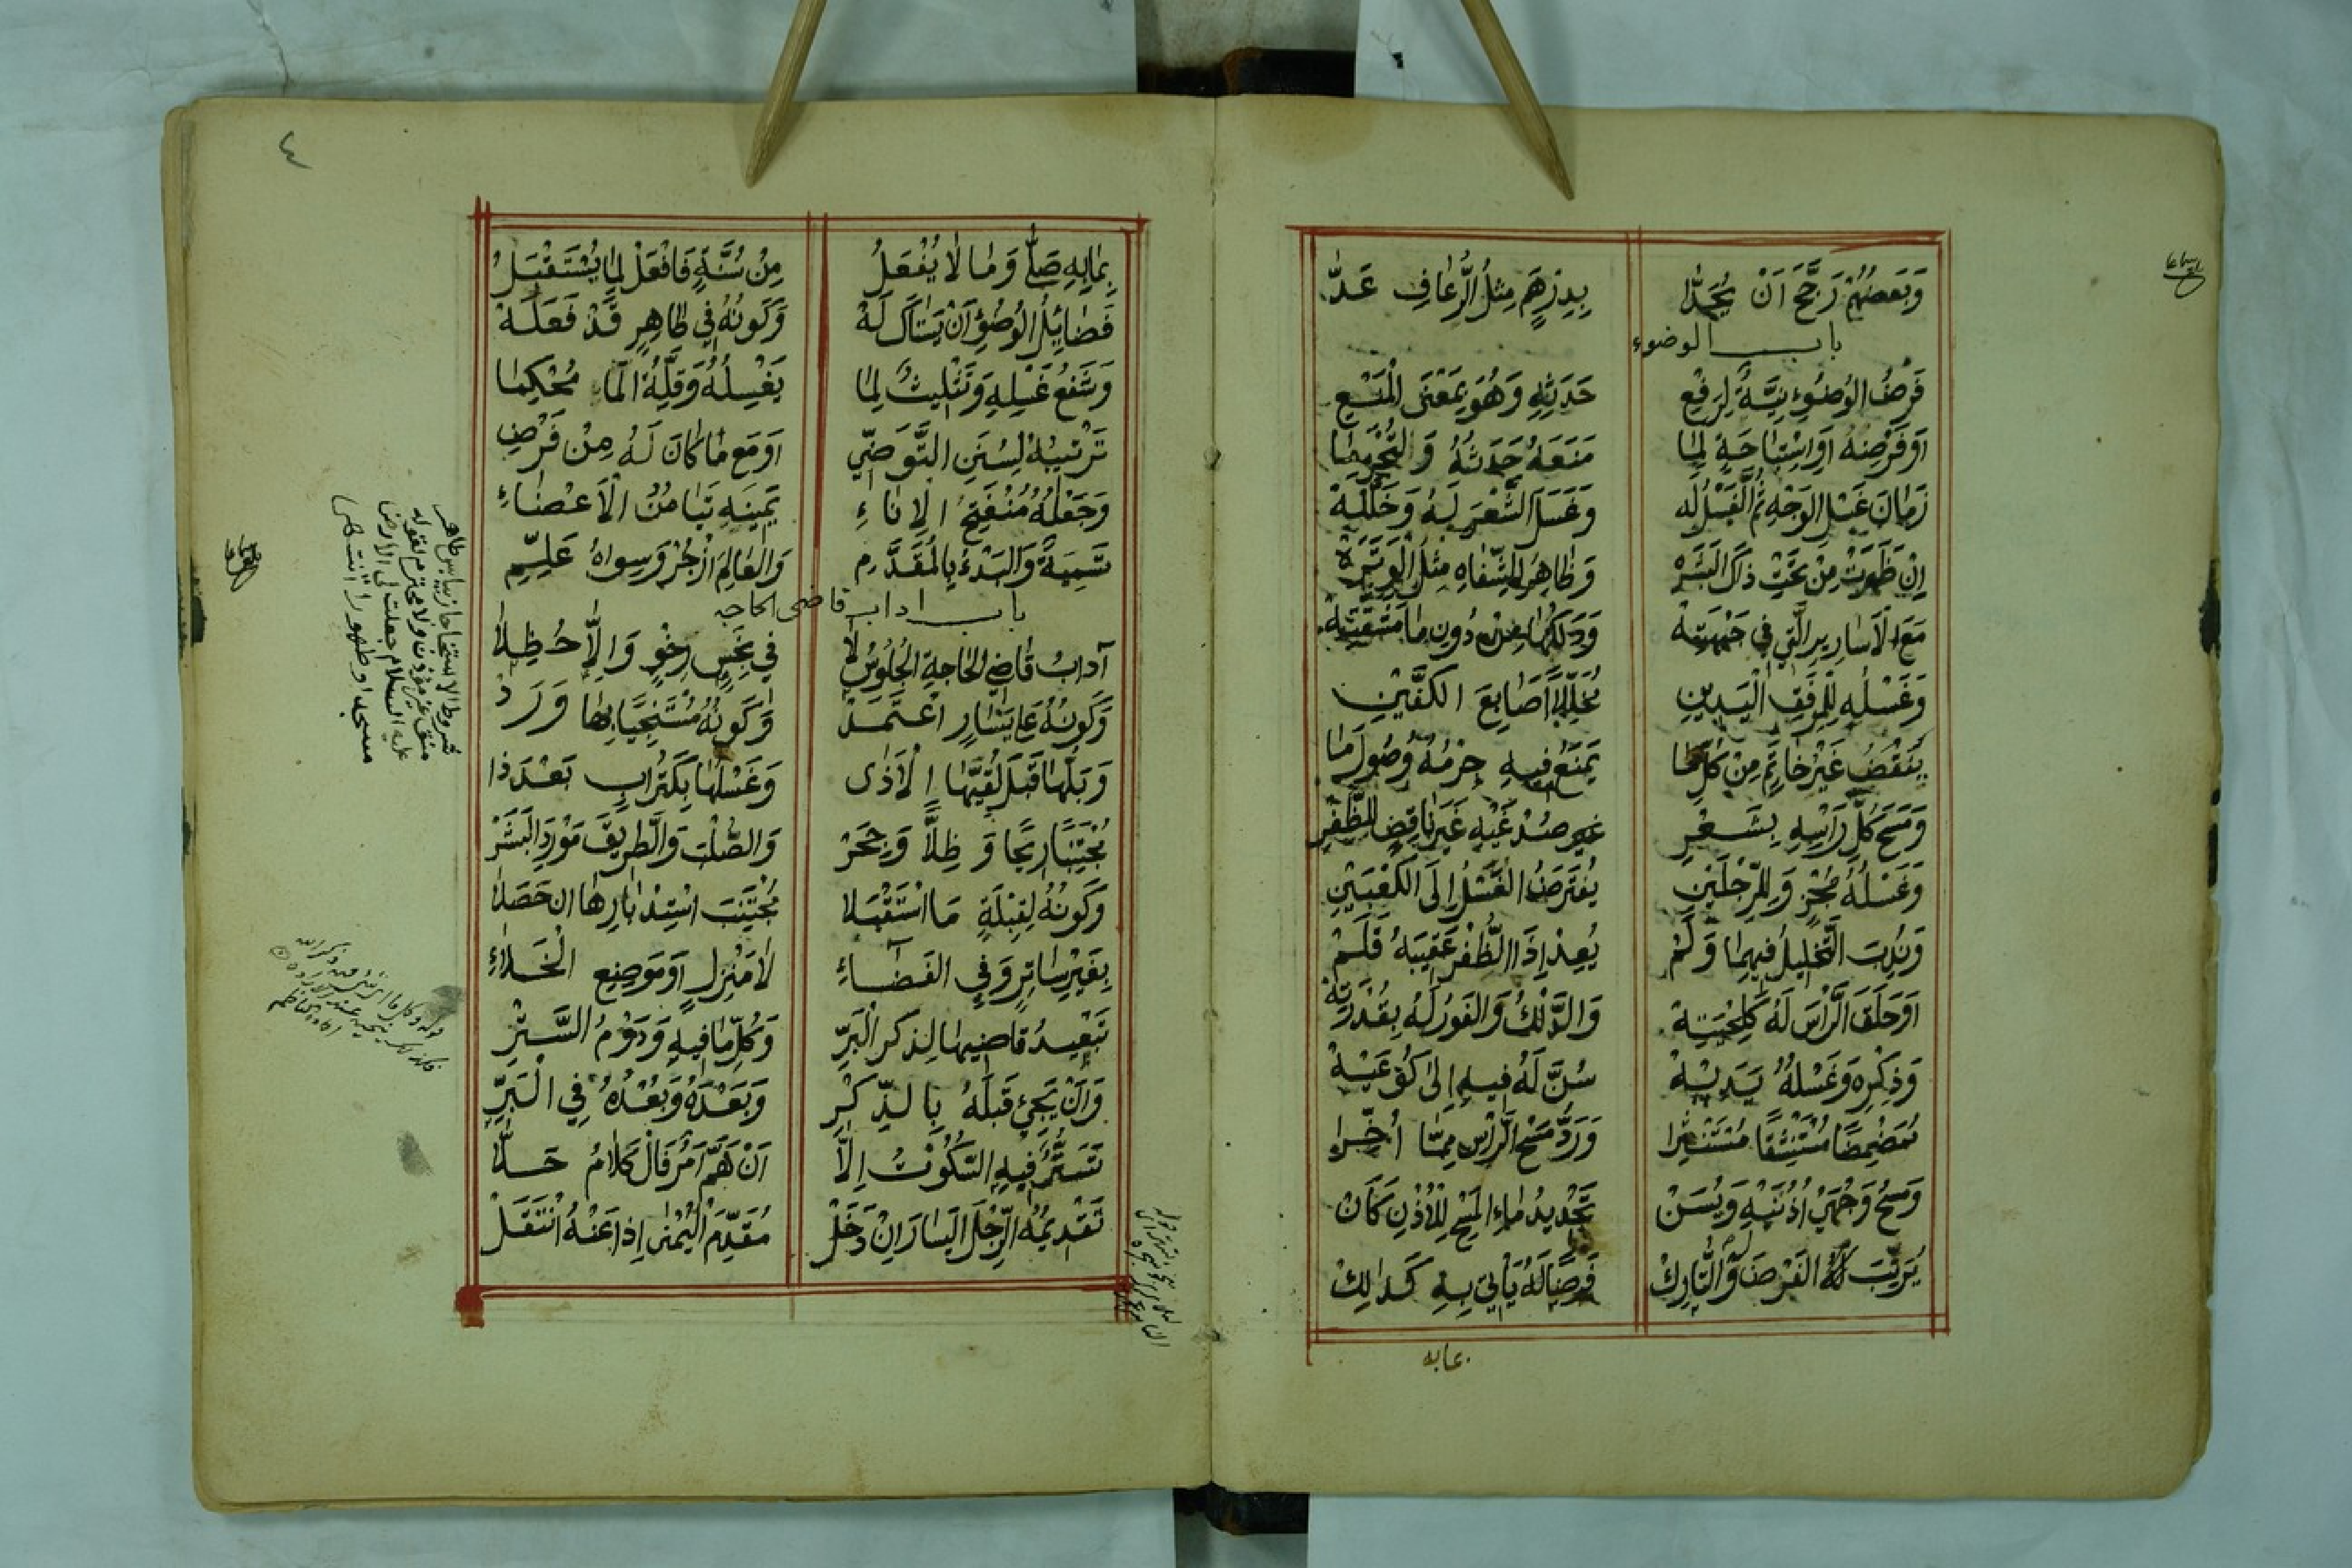 وَبَعضُهُمْ رَجَّحَ اَنْ يُحَدَّا بِدِرْهَمٍ مِثْلُ الرُّعَافِ عَدَّا
باب الوضوء
فَرْضُ الوُضُوءِ نِيَّةٌ لِرَفْعِ حَدَثِهِ وَهُوَ بِمَعْنَى الْمَنْعِ
اَوْ فَرْضِهِ اَوِ اسْتِبَاحَةٍ لِمَا مَنَعَهُ حَدَثُهُ
زَمَانَ غَسْلِ الوَجْهِ ثُمَّ الغَسْلُ لَهْ وَغَسَلَ الشَّعْرَ لَهُ وَخَلَّلَهْ
اِنْ ظَهَرَتْ مِنْ تَحْتِ ذَاكَ البَشَرَهْ وَظَاهِرَ الشِّفَاهِ مِثْلُ الْوَتَرَهْ
مَعَ الْاَسَارِيرِ الَّتِي فِي جَبْهَتِهْ وَدَلْكُهَا مِنْ دُونِ مَا مَشَقَّتِهْ
وَغَسْلُهِ لِلْمِرْفَقِ الْيَدَيْنِ مُخَلِّلًا اَصَابِعَ الكَفَّيْنِ
يُنْقَضُ غَيْرُ خَاتَمٍ مِنْ كُلِّ مَا يَمْنَعُ فِيهِ جِرْمُهُ وُصُولَ مَا
وَمَسْحُ كُلِّ رَأسِهِ بِشَعْرِ صُدْغَيْهِ غَيْرَ نَاقِضٍ لِلضَّفْرِ
وَغَسْلُهُ مُجْزٍ وَلِلرِّجْلَيْنِ يُفْتَرَضُ الغَسْلُ اِلَى الكَعْبَيْنِ
وَنُدِبَ التَّخْلِيلُ فِيهِمَا وَلَمْ يُعِدْ اِذَا الظُّفْرَ عَقِيبَهُ قَلَمْ
اَوْ حَلَقَ الرَّأسَ لَهُ كَلِحْيَتِهْ وَالدَّلْكُ وَالفَوْرُ لَهُ بِقُدْرَتِهْ
وَذِكْرِهِ وَغَسْلُهُ يَدَيْهْ سُنَّ لَهُ فِيهِ اِلَى كُوْعَيْهْ
مُمَضْمِضًا مُسْتَنْشِقًا مُسْتَنْثِرَا وَرَدُّ مَسْحِ الرَّأسِ مِمَّا اُخِّرَا
وَمَسْحُ وَجْهَيْ اُذُنَيْهِ وَيُسَنْ تَجْدِيدُ مَاءِ المَسْحِ لِلْاُذْنِ كَاَنْ
يُرَتِّبَ الفَرْضَ وَالتَّارِكْ فَرْضًا لَهُ يَأتِي بِهِ كَذَالِكْ
٤
بِمَا بِهِ صَلَّى وَمَا لَا يُفْعَلُ مِنْ سُنَّةٍ فَافْعَلْ لِمَا يُسْتَقْبَلُ
فَضَائِلُ الوُضُوءِ اَنْ يَسْتَاكَ لَهْ وَكَونُهُ فِي طَاهِرٍ قَدْ فَعَلَهْ
وَشَفْعُ غَسْلِهِ وَتَثْلِيثٌ لِمَا يَغْسِلُهُ وَقِلَّةُ الْمَا مُحْكِمَا
تَرْتِيبُهُ لِسُنَنِ التَّوَضِّي اَوْ مَعَ مَا كَانَ لَهُ مِنْ فَرْضِ
وَجَعْلُهُ مُنْفَتِحُ الاِنَاءِ يَمِينَهِ تَيَامُنُ الْاَعْضَاءِ
تَسْمِيَةٌ وَالبَدْءُ بِالْمُقَدَّمِ
باب اداب قاضى الحاجه
آدَابُ قَاضِي الحَاجَةِ الجُلُوسُ لَا فِي نَجِسٍ رِخْوٍ وَاِلَّا حُظِلَا
وَكَونُهُ عَلَى يَسَارٍ اعْتَمَدْ وَكَونُهُ مُسْتَنْجِيًا بِهَا وَرَدْ
وَبَلُّهَا قَبْلَ لُقِيِّهَا الْاَذَى وَغَسْلُهَا بِكَتُرَابٍ بَعْدَ ذَا
مُجْتَنِبًا رِيحًا وَظِلًّا وَجُحَرْ وَالصُّلْبَ وَالطَّرِيقَ مَوْرِدَ البَشَرْ
وَكَونُهُ لِقِبْلَةٍ مَا اسْتَقْبَلَا مُجْتَنِبَ اسْتِدْبَارِهَا ان حَصَلَا
بِغَيْرِ سَاتِرٍ وَفِي الفَضَاءِ لَا مَنْزِلٍ اَوْ مَوضِعِ الْخَلَاءِ
تَبْعِيدُ قَاضِيهَا لِذِكْرِ الْبَرِّ وَكُلِّ مَا فِيهِ وَدَوْمُ السَّتْرِ
وَاَنْ يَجِيءَ قَبْلَهُ بِالذِّكْرِ وَبَعْدَهُ وَبُعْدُهُ فِي الْبَرِّ
تَسَتُّرٌ فِيهِ السُّكُوتُ اِلَّا اَنْ هَمَّ اَمْرٌ فَالكَلَامُ حَلَّا
تَقْدِيمُهُ الرِّجْلَ اليَسَارَ اِنْ دَخَلْ مُقَدِّمَ الْيُمْنَى اِذَا عَنْهُ انْتَقَلْ
شروط الاستنجاء زيابس طاهر
منق غير مؤذ ولا محترم لقوله
عليه السلام جعلت لي الارض
مسجدا وطهورا انتهى